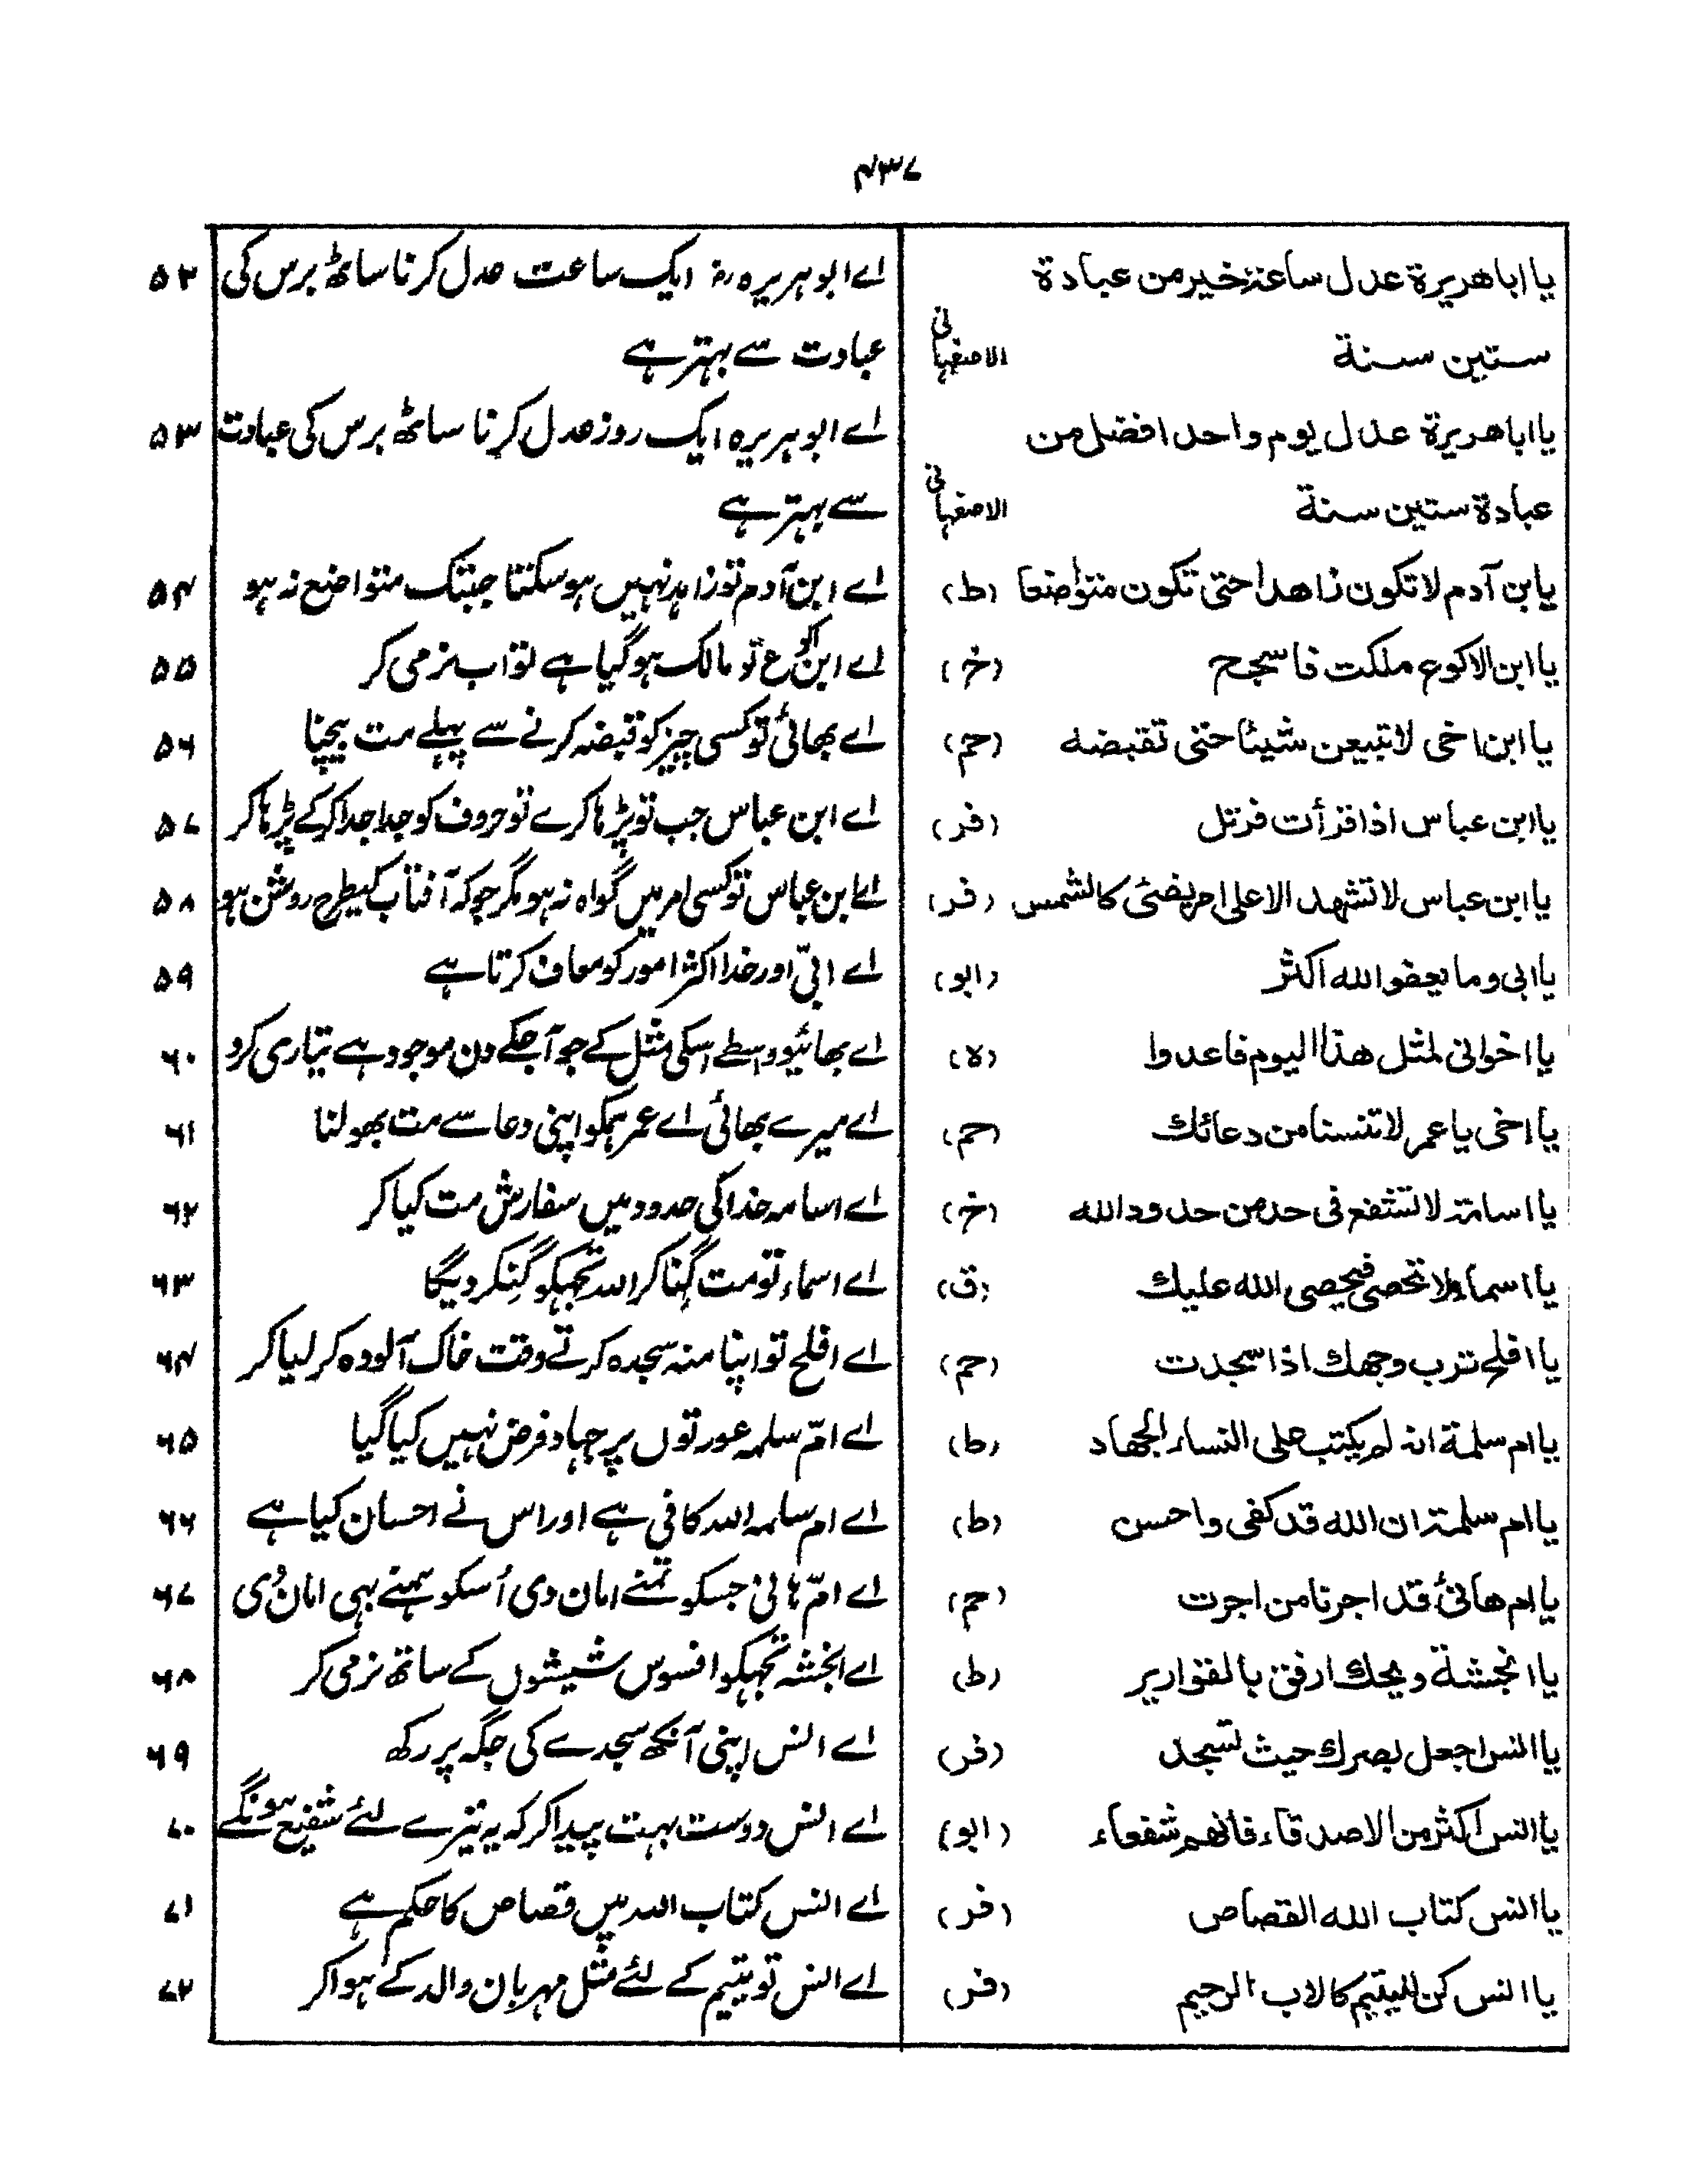 ۴۳۷
یا اباهریرة عدل ساعة خیر من عبادة اے ابوہریرہ رض ایک ساعت عدل کرنا ساٹھ برس کی ۵۲
ستین سنة الاصفهانی عبادت سے بہتر ہے
یا اباهریرة عدل یوم واحد افضل من اے ابوہریرہ ایک روز عدل کرنا ساٹھ برس کی عبادت ۵۳
عبادة ستین سنة الاصفهانی سے بہتر ہے
یابن آدم لا تکون زاهدا حتی تکون متواضعا (ط) اے ابن آدم تو زاہد نہیں ہو سکتا جبتک متواضع نہ ہو ۵۴
یا ابن الاکوع ملکت فاسجح (خ) اے ابن اکوع تو مالک ہوگیا ہے تو اب نرمی کر ۵۵
یا ابن اخی لا تبیعن شیئا حتی تقبضه (حم) اے بھائی تو کسی چیز کو قبضہ کرنے سے پہلے مت بیچنا ۵۶
یا ابن عباس اذا قرأت فرتل (فر) اے ابن عباس جب تو پڑہا کرے تو حروف کو جدا جدا کرکے پڑہا کر ۵۷
یا ابن عباس لا تشهد الا علی امر یضئی کالشمس (فر) اے ابن عباس تو کسی امر میں گواہ نہ ہو مگر جو کہ آفتاب کیطرح روشن ہو ۵۸
یا ابی وما یعفو الله اکثر (ابو) اے ابیّ اور خدا اکثر امور کو معاف کرتا ہے ۵۹
یا اخوانی لمثل هذا الیوم فاعدوا (ه) اے بھائیو واسطے اسکی مثل کے جو آجکے دن موجود ہے تیاری کرو ۶۰
یا اخی یا عمر لا تنسنا من دعائك (حم) اے میرے بھائی اے عمر ہمکو اپنی دعا سے مت بھولنا ۶۱
یا اسامة لا تشفع فی حد من حدود الله (خ) اے اسامہ خدا کی حدود میں سفارش مت کیا کر ۶۲
یا اسماء ولا تحصی فیحصی الله علیك (ق) اے اسماء تو مت گِنا کر اللہ تجھکو گِنکر دیگا ۶۳
یا افلح ترب وجهك اذا سجدت (حم) اے افلح تو اپنا منہ سجدہ کرتے وقت خاک آلودہ کر لیا کر ۶۴
یا ام سلمة انه لم یکتب علی النساء الجهاد (ط) اے امّ سلمہ عورتوں پر جہاد فرض نہیں کیا گیا ۶۵
یا ام سلمة ان الله قد کفی واحسن (ط) اے ام سلمہ اللہ کافی ہے اور اس نے احسان کیا ہے ۶۶
یا ام هانئ قد اجرنا من اجرت (حم) اے امّ ہانی جسکو تمنے امان دی اُسکو ہمنے بہی امان دی ۶۷
یا انجشة ویحك ارفق بالقواریر (ط) اے انجشہ تجہکو افسوس شیشوں کے ساتھ نرمی کر ۶۸
یا انس اجعل بصرك حیث تسجد (فر) اے انس اپنی آنکھ سجدے کی جگہ پر رکھ ۶۹
یا انس اکثر من الاصدقاء فانهم شفعاء (ابو) اے انس دوست بہت پیدا کر کہ یہ تیرے لئے شفیع ہونگے ۷۰
یا انس کتاب الله القصاص (فر) اے انس کتاب اللہ میں قصاص کا حکم ہے ۷۱
یا انس کن للیتیم کالاب الرحیم (فر) اے انس تو یتیم کے لئے مثل مہربان والد کے ہوا کر ۷۲